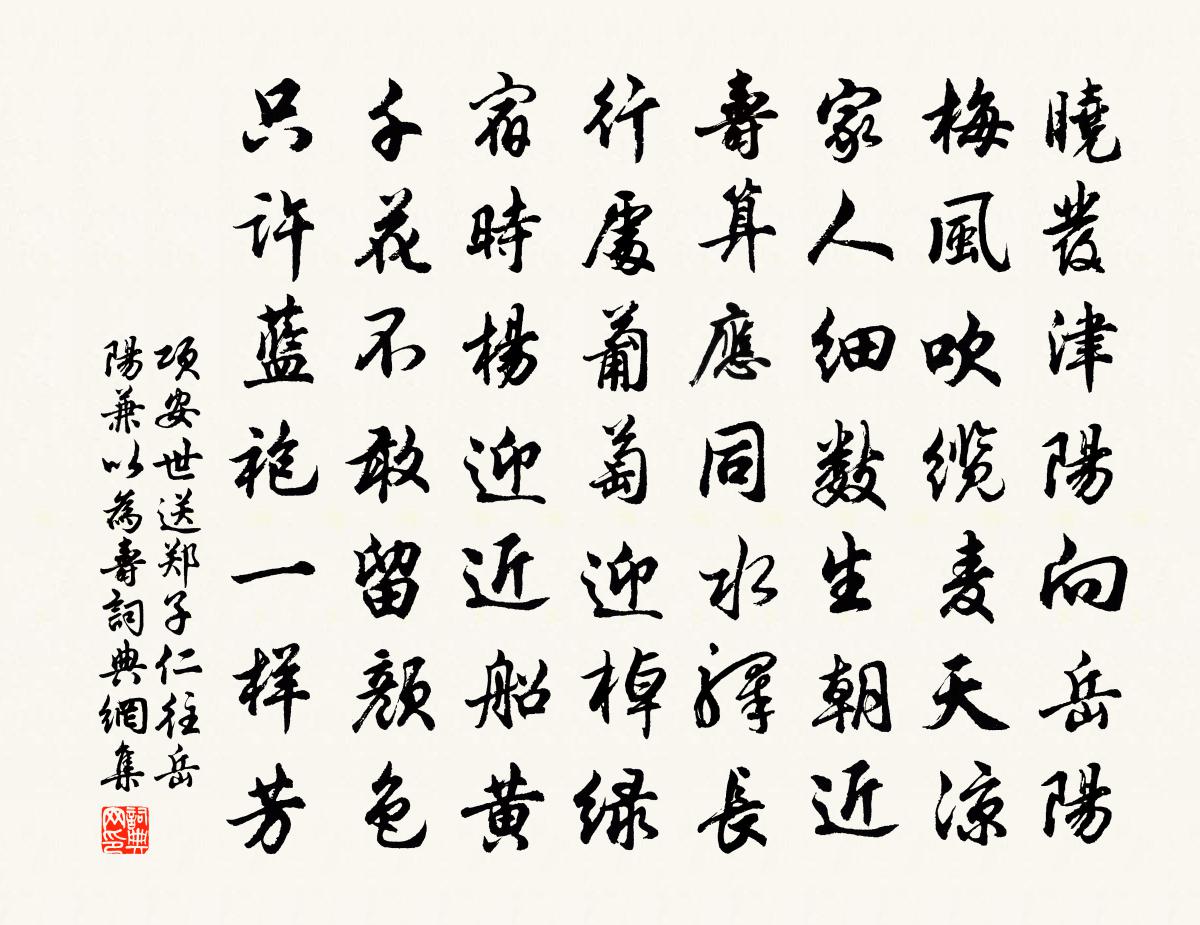 曉發津陽向岳陽
梅風吹纜麦天涼
家人細數生朝近
壽算應同水驛長
行處葡萄迎棹緑
宿時楊迎近船黄
千花不敢留顏色
只許藍袍一样芳
項安世送郑子仁往岳
陽兼以為壽詞典網集
詞典
网印